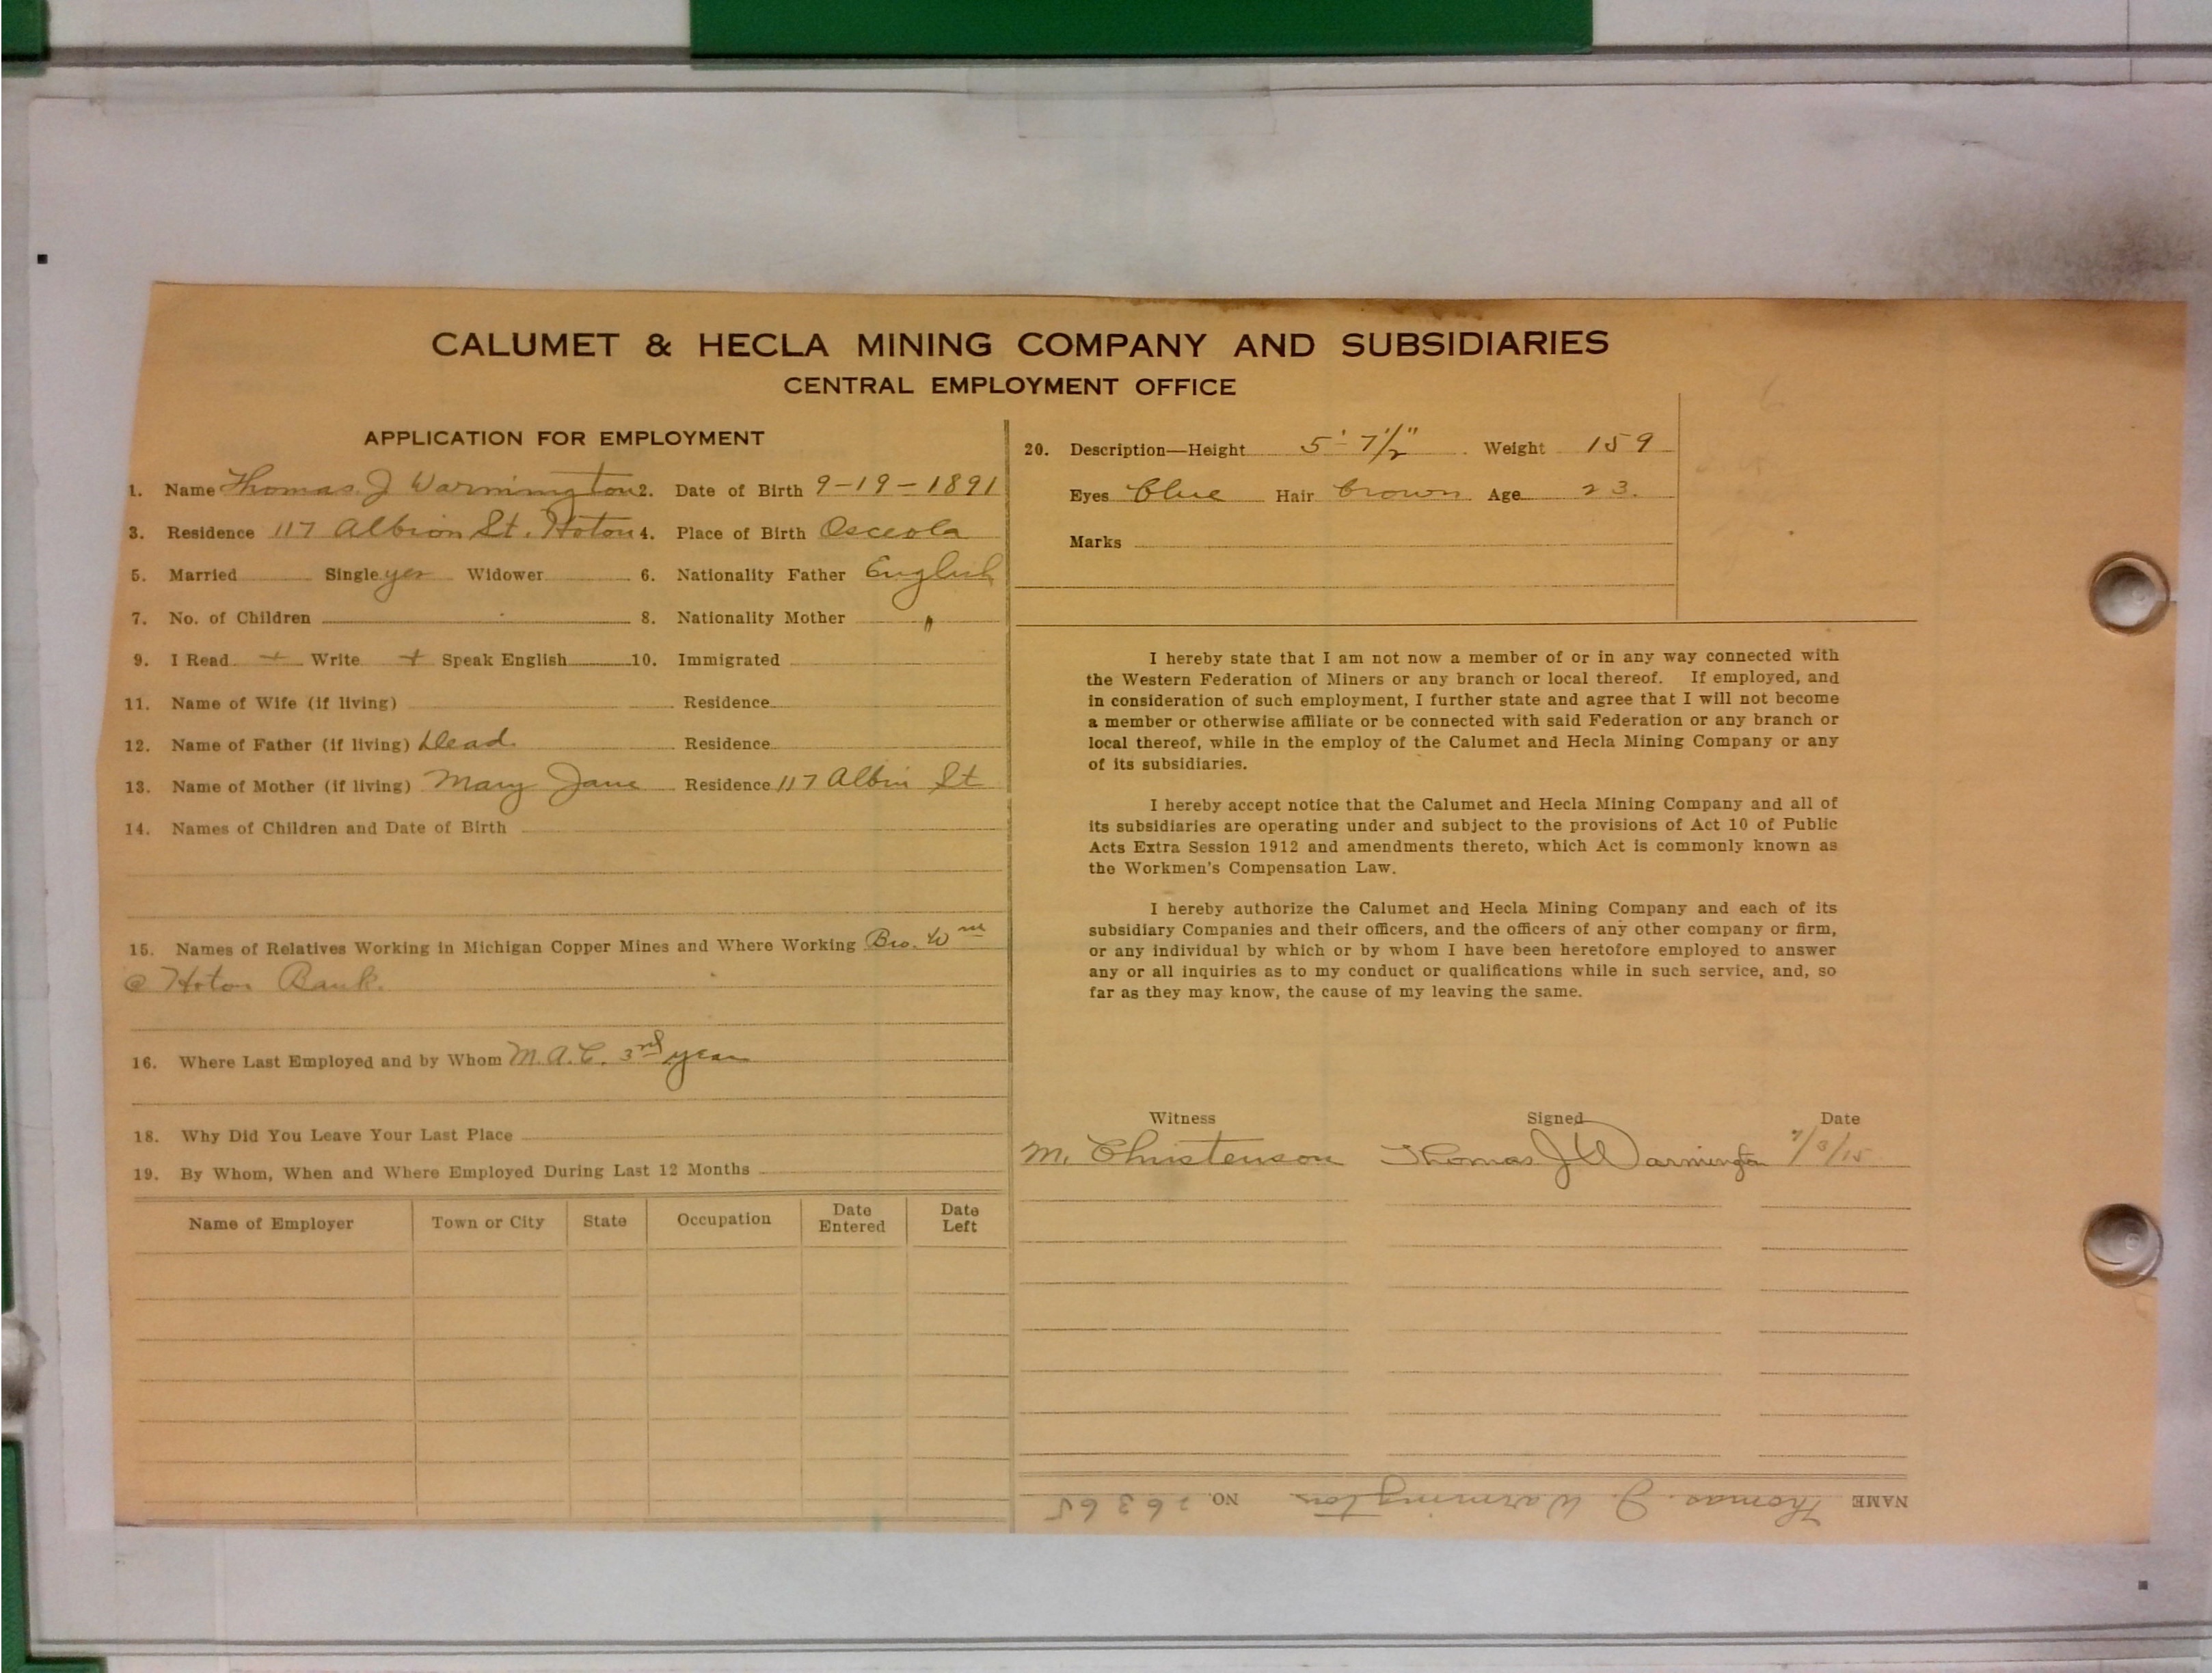 CALUMET & HECLA MINING COMPANY AND SUBSIDIARIES
CENTRAL EMPLOYMENT OFFICE
APPLICATION FOR EMPLOYMENT
1. Name Thomas J Warmington 2. Date of Birth 9-19-1891
3. Residence 117 Albion St. Hoton 4. Place of Birth Osceola
5. Married Single yes Widower 6. Nationality Father English
7. No. of Children 8. Nationality Mother "
9. I Read + Write + Speak English 10. Immigrated
11. Name of Wife (if living) Residence
12. Name of Father (if living) Dead. Residence
13. Name of Mother (if living) Mary Jane Residence 117 Albin St
14. Names of Children and Date of Birth
15. Names of Relatives Working in Michigan Copper Mines and Where Working Bro. Wm
@ Hoton Bank.
16. Where Last Employed and by Whom M.A.C. 3rd year
18. Why Did You Leave Your Last Place
19. By Whom, When and Where Employed During Last 12 Months
Name of Employer Town or City State Occupation Date Entered Date Left
20. Description—Height 5' 7 1/2" Weight 159
Eyes blue Hair brown Age 23.
Marks
I hereby state that I am not now a member of or in any way connected with
the Western Federation of Miners or any branch or local thereof. If employed, and
in consideration of such employment, I further state and agree that I will not become
a member or otherwise affiliate or be connected with said Federation or any branch or
local thereof, while in the employ of the Calumet and Hecla Mining Company or any
of its subsidiaries.
I hereby accept notice that the Calumet and Hecla Mining Company and all of
its subsidiaries are operating under and subject to the provisions of Act 10 of Public
Acts Extra Session 1912 and amendments thereto, which Act is commonly known as
the Workmen's Compensation Law.
I hereby authorize the Calumet and Hecla Mining Company and each of its
subsidiary Companies and their officers, and the officers of any other company or firm,
or any individual by which or by whom I have been heretofore employed to answer
any or all inquiries as to my conduct or qualifications while in such service, and, so
far as they may know, the cause of my leaving the same.
Witness Signed Date
M. Christenson Thomas J Warmington 7/3/15
NAME Thomas. J. Warmington NO. 26365